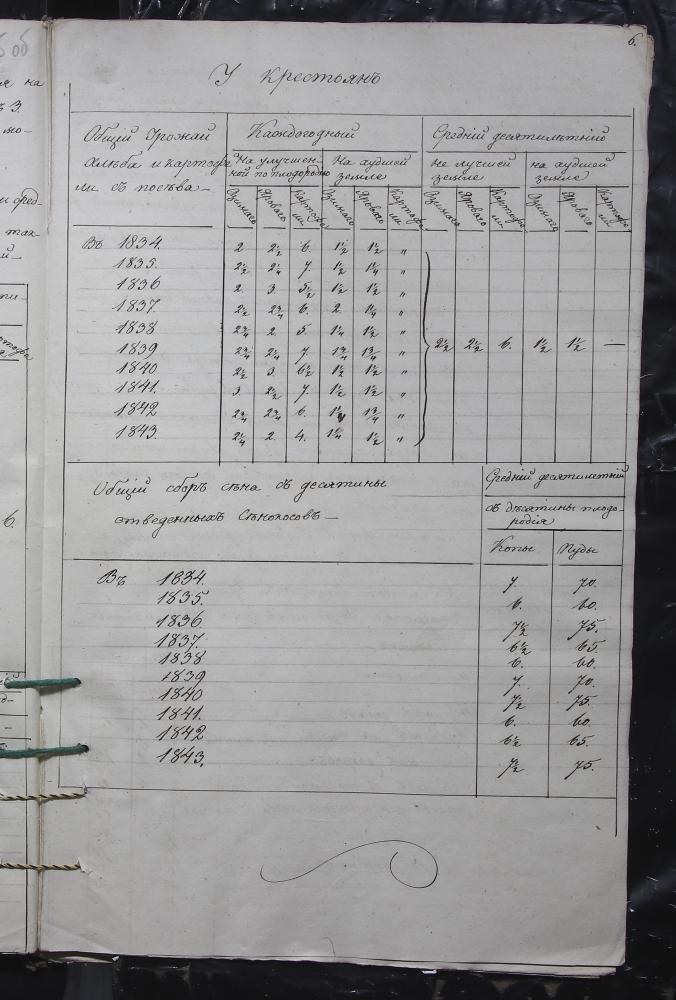 6.
У крестьянъ
Общій Урожай
хлѣба и картофе
ли съ посѣва —
Каждогодный
На улучшен-
ной по плодородію
На худшей
землѣ
Средній десятилѣтній
на лучшей
землѣ
на худшей
землѣ
Озимаго Яроваго Картофе ли Озимаго Яроваго Картофе ли Озимаго Яроваго Картофе ли Озимаго Яроваго Картофе ли
Въ 1834. 2 2½ 6. 1½ 1½ „
1835. 2½ 2¼ 7. 1½ 1¼ „
1836 2. 3. 5½ 1½ 1½ „
1837. 2½ 2¾ 6. 2. 1¼ „
1838 2¾ 2. 5. 1¼ 1½ „
1839 2¾ 2¼ 7. 1¾ 1¾ „ 2½ 2½ 6. 1½ 1½ —
1840 2½ 3. 6½ 1½ 1½ „
1841. 3. 2½ 7. 1½ 1½ „
1842 2¾ 2¾ 6. 1¼ 1¾ „
1843. 2¼ 2. 4. 1¼ 1½ „
Общій сборъ сѣна съ десятины
отведенныхъ Сѣнокосовъ —
Средній десятилѣтній
съ десятины плодо-
родія
Копы Пуды
Въ 1834. 7. 70.
1835. 6. 60.
1836 7½ 75.
1837. 6½ 65.
1838 6. 60.
1839 7. 70.
1840 7½ 75.
1841. 6. 60.
1842 6½ 65.
1843. 7½ 75.